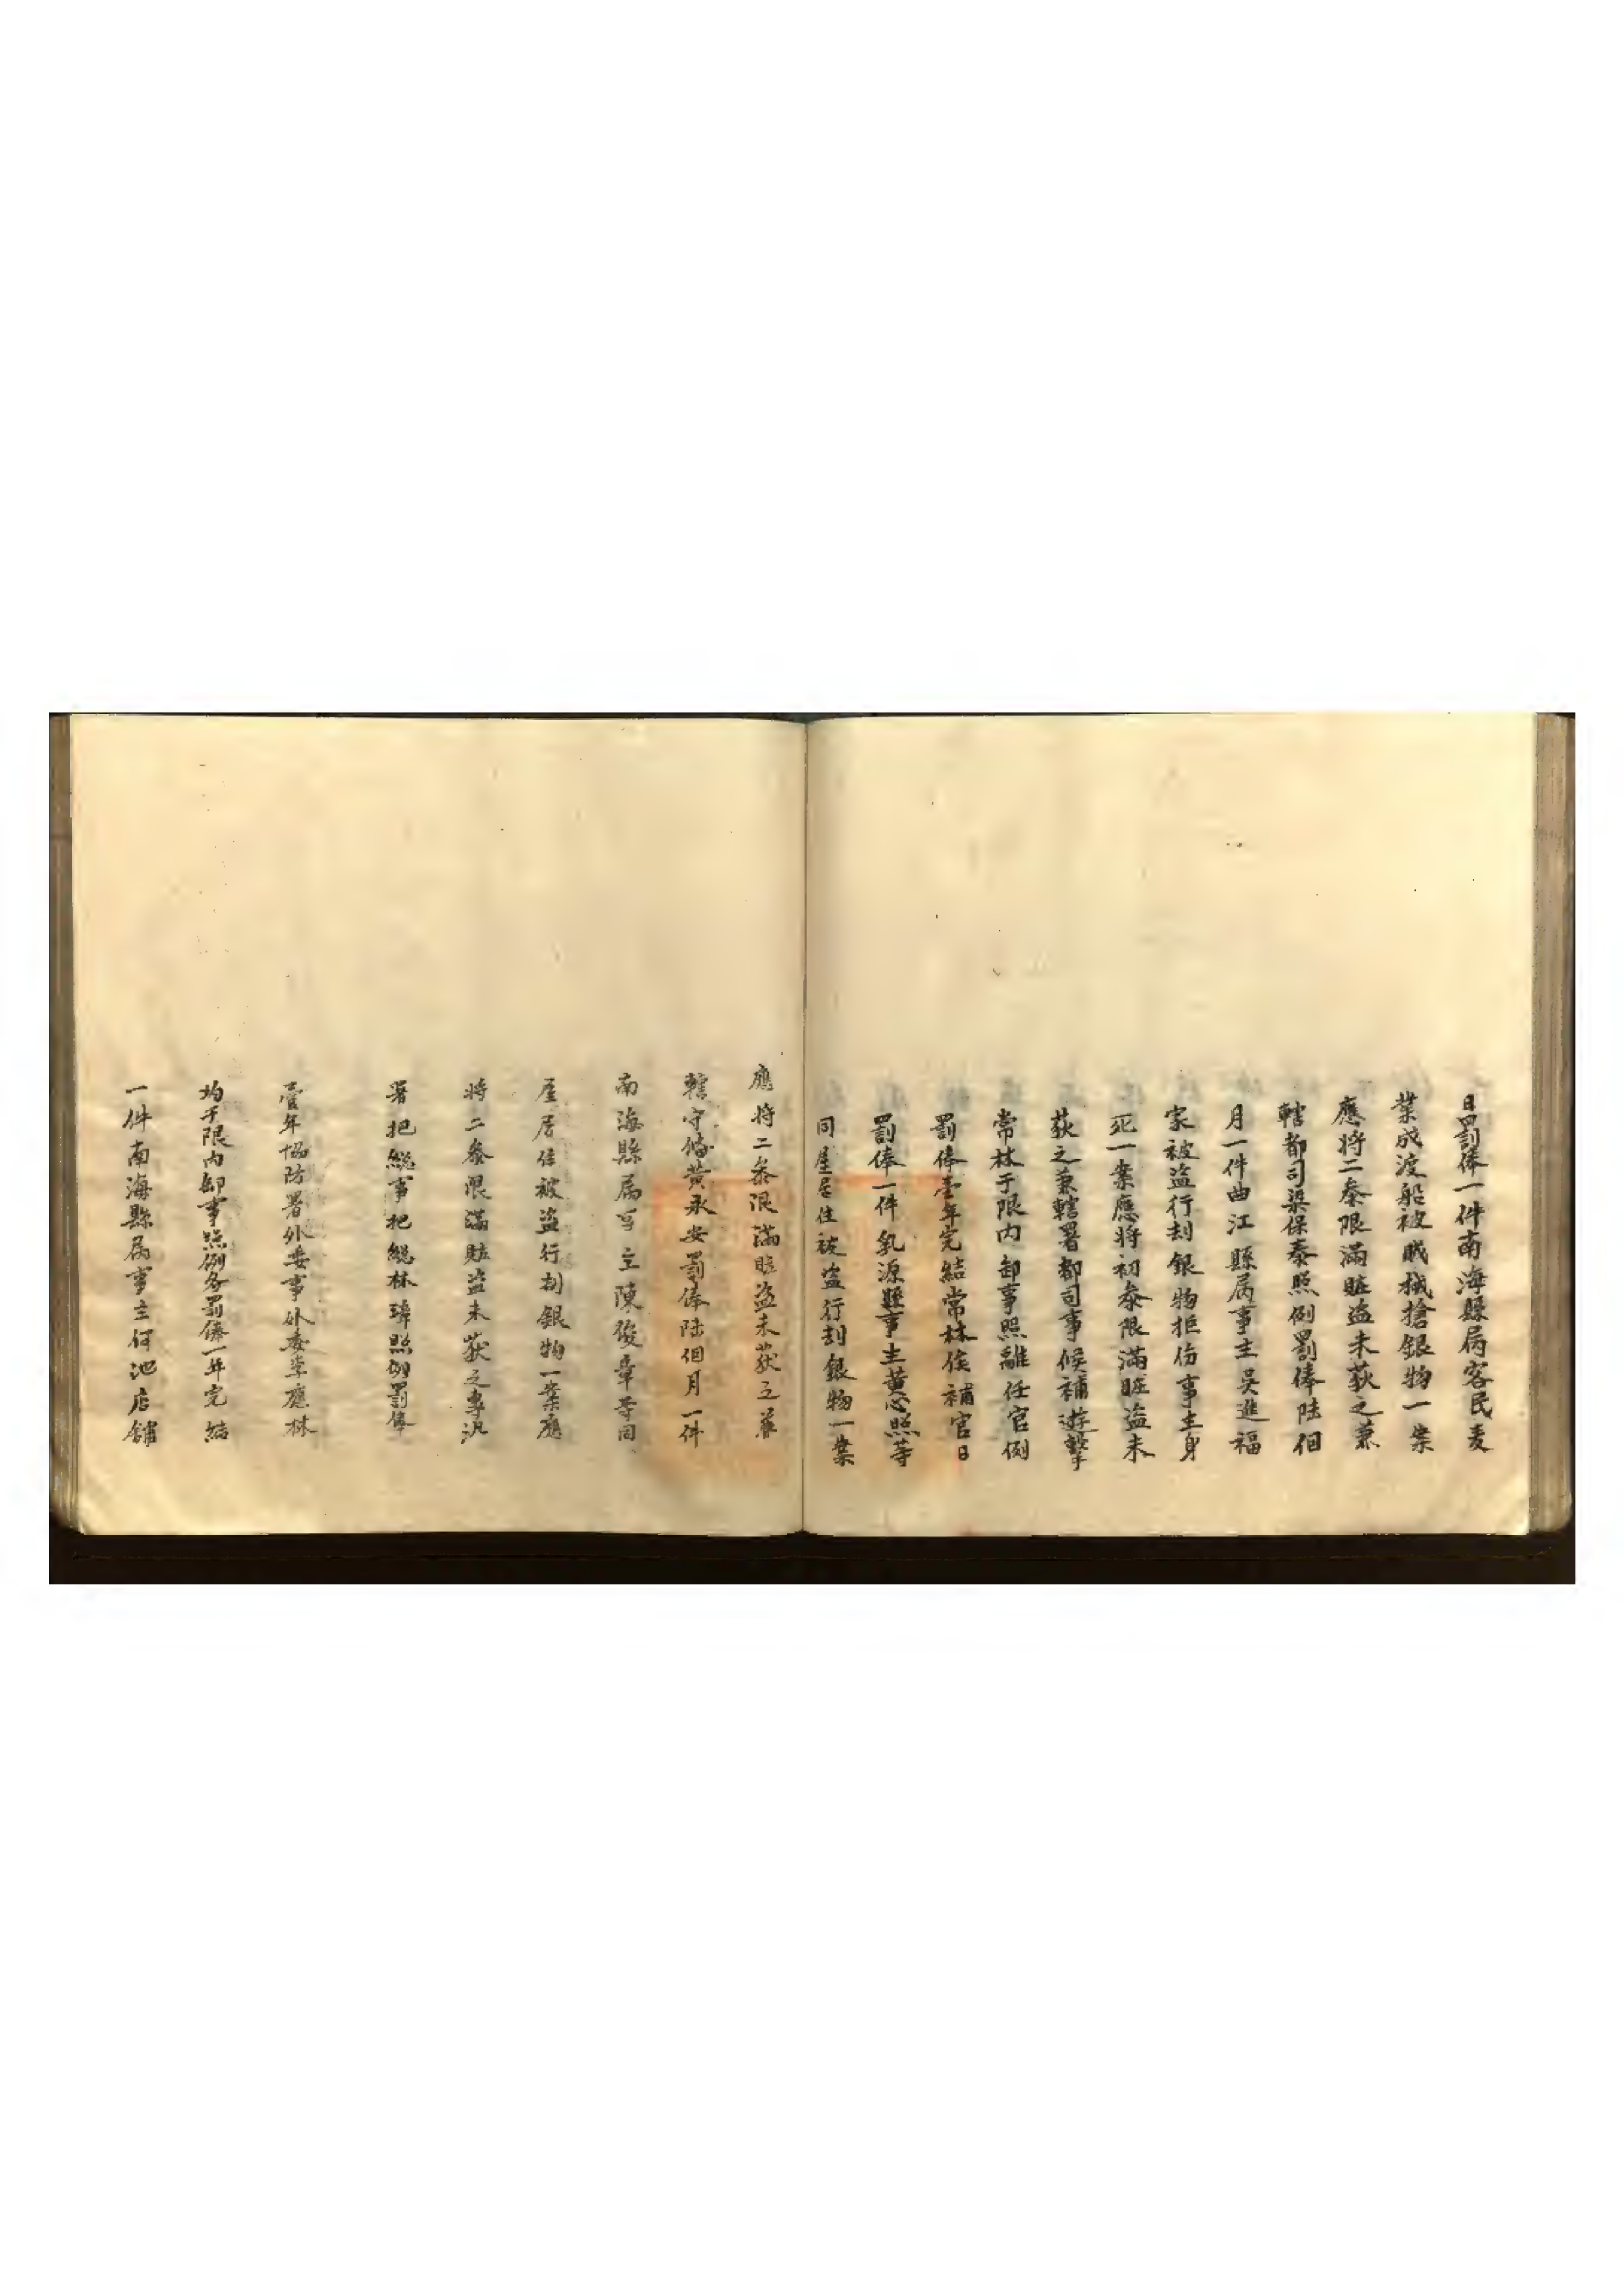 日罰俸一件南海縣屬客民麦
業成渡船被賊械搶銀物一案
應將二叅限滿賍盗未获之兼
轄都司梁保泰照例罰俸陸個
月一件曲江縣属事主吳進福
家被盗行刦銀物拒伤事主身
死一案應將初叅限滿賍盗未
获之兼轄署都司事候補遊擊
常林于限内卸事照離任官例
罰俸壹年完結常林俟補官日
罰俸一件乳源縣事主黄心照等
同屋居住被盗行刦銀物一案
應将二叅限滿賍盗未获之兼
轄守俻黄承安罰俸陸個月一件
南海縣属事主陳俊章等同
屋居住被盗行刦銀物一案應
将二叅限滿賍盗未获之專汛
署把総事把総林璋照例罰俸
壹年協防署外委事外委李應林
均于限内卸事照例各罰俸一年完結
一件南海縣属事主何池店舖